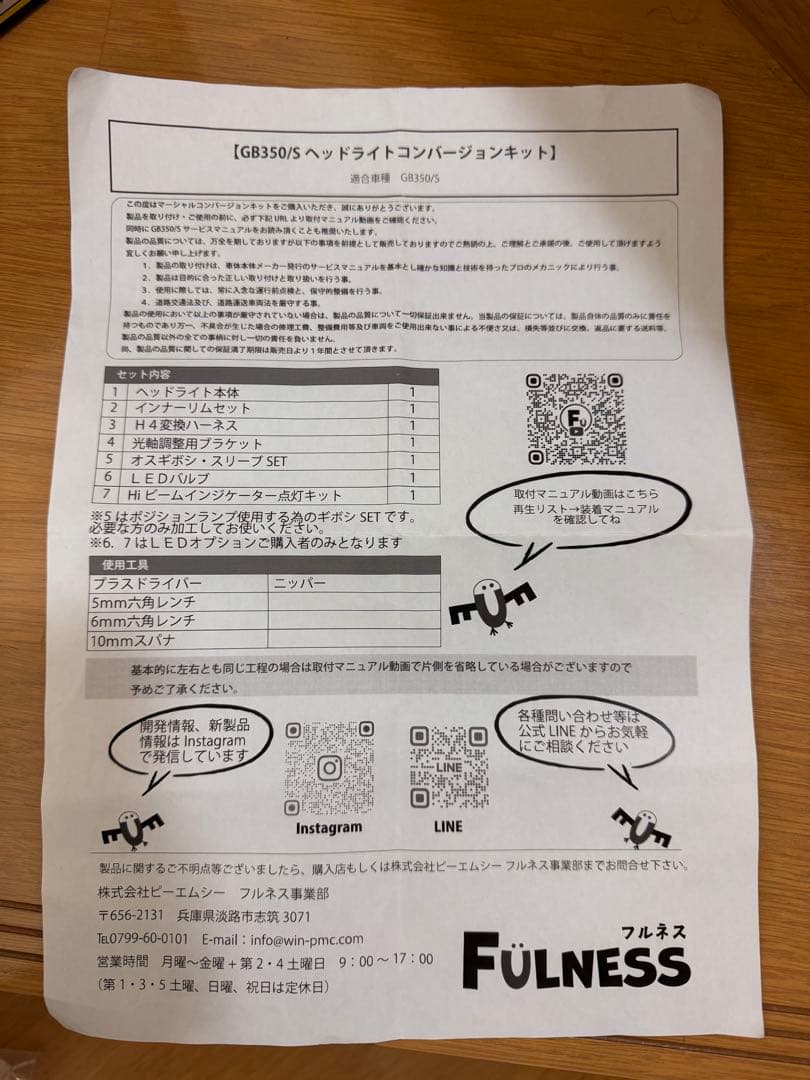 【GB350/S ヘッドライトコンバージョンキット】
適合車種　GB350/S
この度はマーシャルコンバージョンキットをご購入いただき、誠にありがとうございます。
製品を取り付け・ご使用の前に、必ず下記URLより取付マニュアル動画をご確認ください。
同時にGB350/Sサービスマニュアルをお読み頂くことも推奨いたします。
製品の品質については、万全を期しておりますが以下の事項を前提として販売しておりますのでご熟読の上、ご理解とご承諾の後、ご使用して頂けますよう
宜しくお願い申し上げます。
1、製品の取り付けは、車体本体メーカー発行のサービスマニュアルを基本とし確かな知識と技術を持ったプロのメカニックにより行う事。
2、製品は目的に合った正しい取り付けと取り扱いを行う事。
3、使用に際しては、常に入念な運行前点検と、保守的整備を行う事。
4、道路交通法及び、道路運送車両法を厳守する事。
製品の使用において以上の事項が厳守されていない場合は、製品の品質について一切保証出来ません。当製品の保証については、製品自体の品質のみに責任を
持つものであり万一、不具合が生じた場合の修理工賃、整備費用等及び車両をご使用出来ない事による不便さ又は、損失等並びに交換、返品に要する送料等、
製品の品質以外の全ての事柄に対し一切の責任を負いません。
尚、製品の品質に関しての保証満了期限は販売日より1年間とさせて頂きます。
セット内容
1 ヘッドライト本体 1
2 インナーリムセット 1
3 H4変換ハーネス 1
4 光軸調整用ブラケット 1
5 オスギボシ・スリーブSET 1
6 LEDバルブ 1
7 Hiビームインジケーター点灯キット 1
取付マニュアル動画はこちら
再生リスト→装着マニュアル
を確認してね
※5はポジションランプ使用する為のギボシSETです。
必要な方のみ加工してお使いください。
※6．7はLEDオプションご購入者のみとなります
使用工具
プラスドライバー ニッパー
5mm六角レンチ
6mm六角レンチ
10mmスパナ
基本的に左右とも同じ工程の場合は取付マニュアル動画で片側を省略している場合がございますので
予めご了承ください。
開発情報、新製品
情報はInstagram
で発信しています
Instagram
LINE
LINE
各種問い合わせ等は
公式LINEからお気軽
にご相談ください
製品に関するご不明点等ございましたら、購入店もしくは株式会社ピーエムシー フルネス事業部までお問合せ下さい。
株式会社ピーエムシー　フルネス事業部
〒656-2131　兵庫県淡路市志筑3071
℡0799-60-0101　E-mail：info@win-pmc.com
営業時間　月曜〜金曜＋第2・4土曜日　9：00〜17：00
（第1・3・5土曜、日曜、祝日は定休日）
フルネス
FÜLNESS